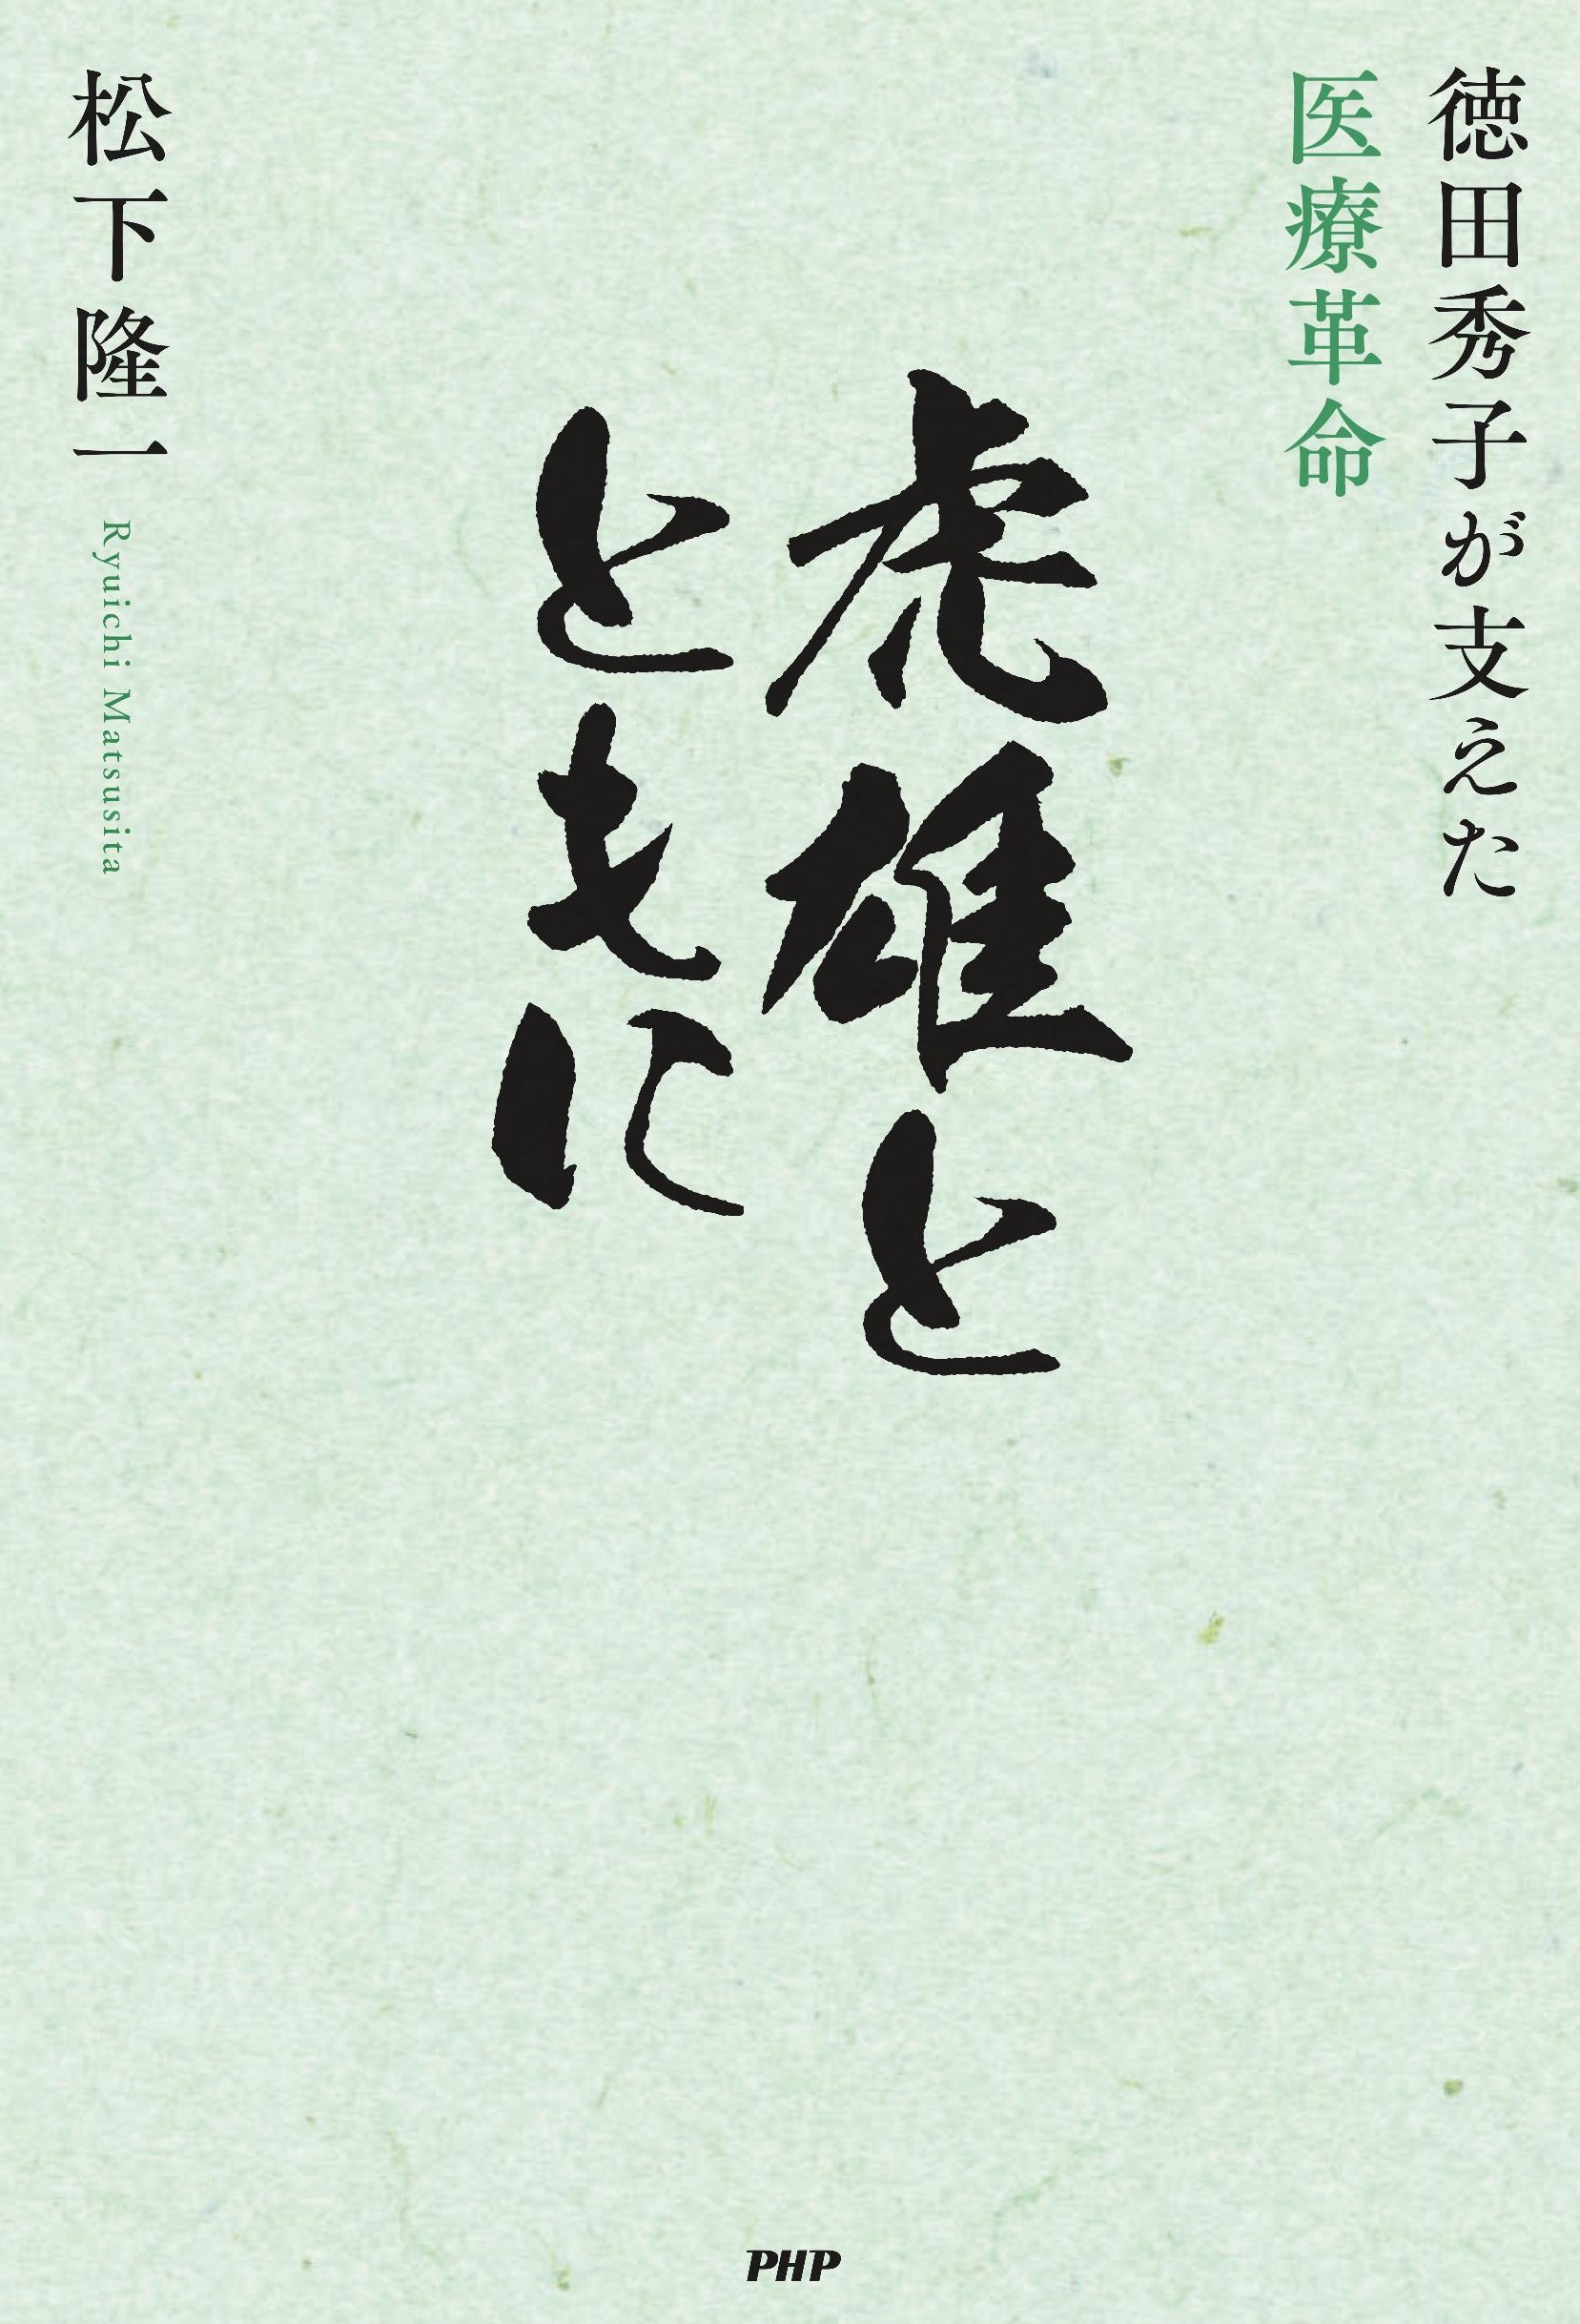 徳田秀子が支えた
医療革命
虎雄と
ともに
松下隆一
Ryuichi Matsusita
PHP